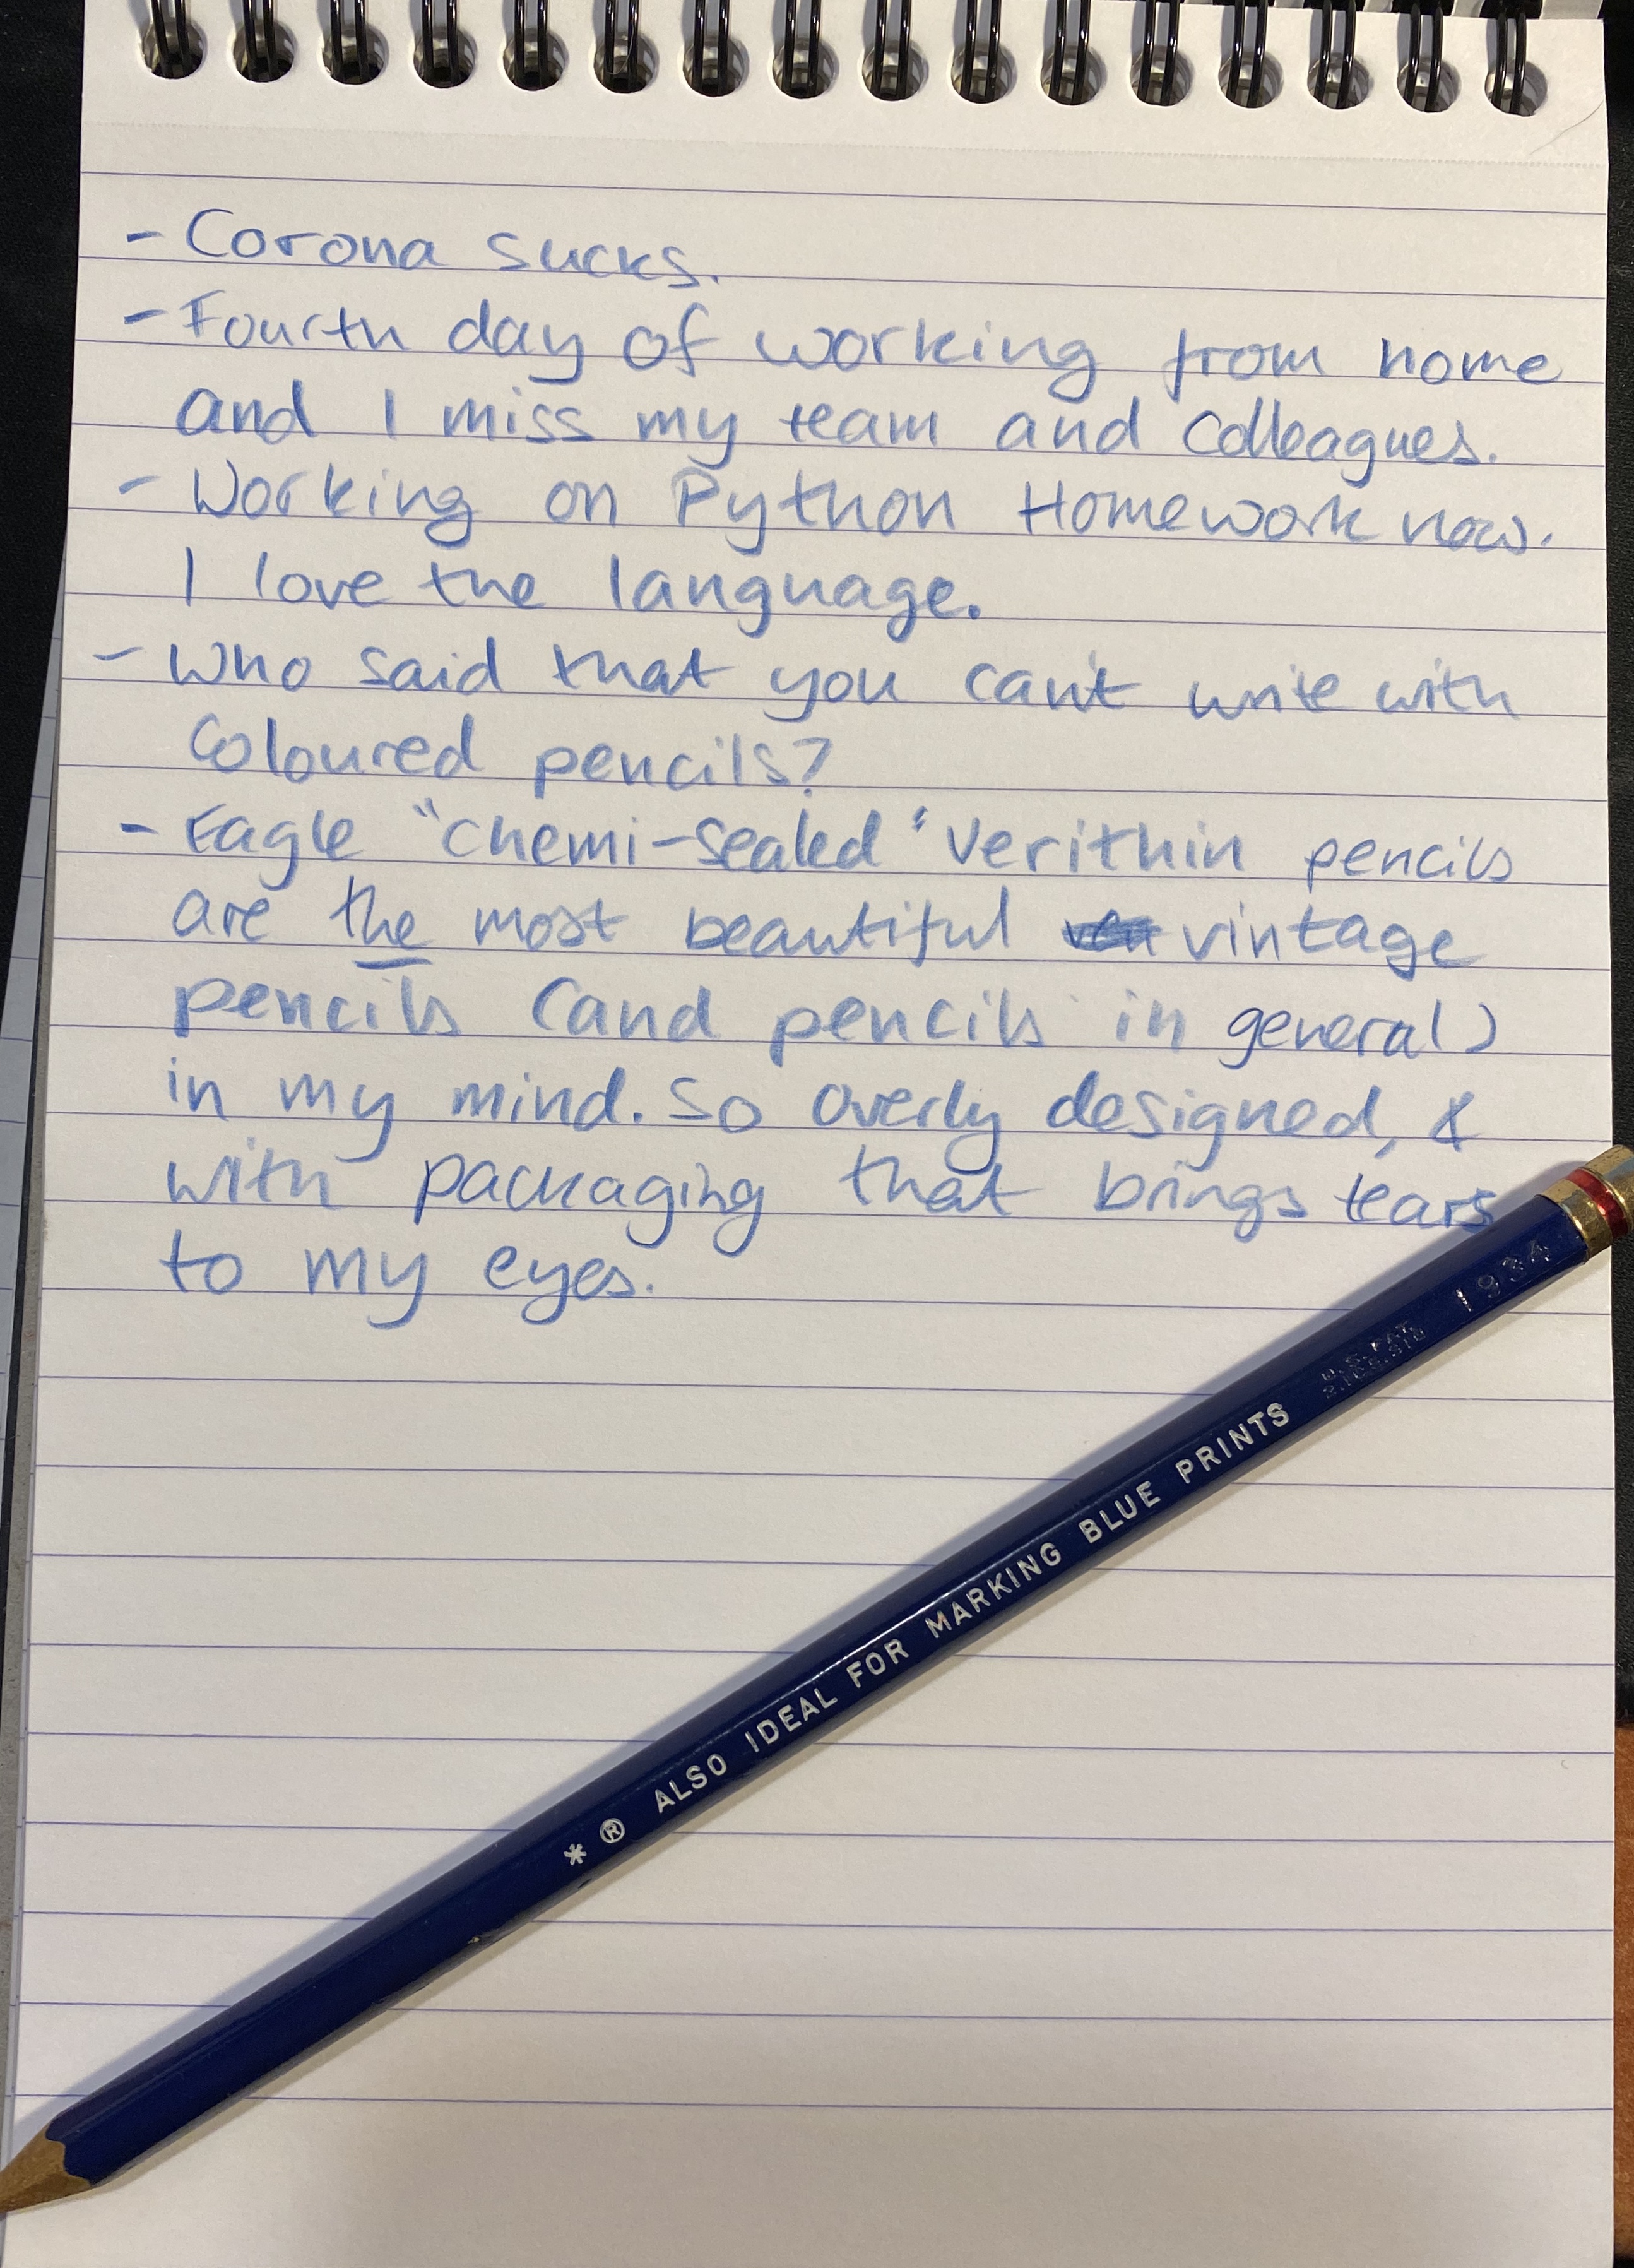 - Corona sucks.
- Fourth day of working from home
and I miss my team and colleagues.
- Working on Python Homework now.
I love the language.
- Who said that you can't write with
coloured pencils?
- Eagle "chemi-sealed" Verithin pencils
are the most beautiful vintage
pencils (and pencils in general)
in my mind. So overly designed, &
with packaging that brings tears
to my eyes.
* ® ALSO IDEAL FOR MARKING BLUE PRINTS
U.S. PAT.
1934